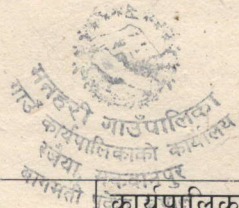 मनहरी गाउँपालिका
गाउँ कार्यपालिकाको कार्यालय
रजैया, मकवानपुर
बागमती
कार्यपालिक